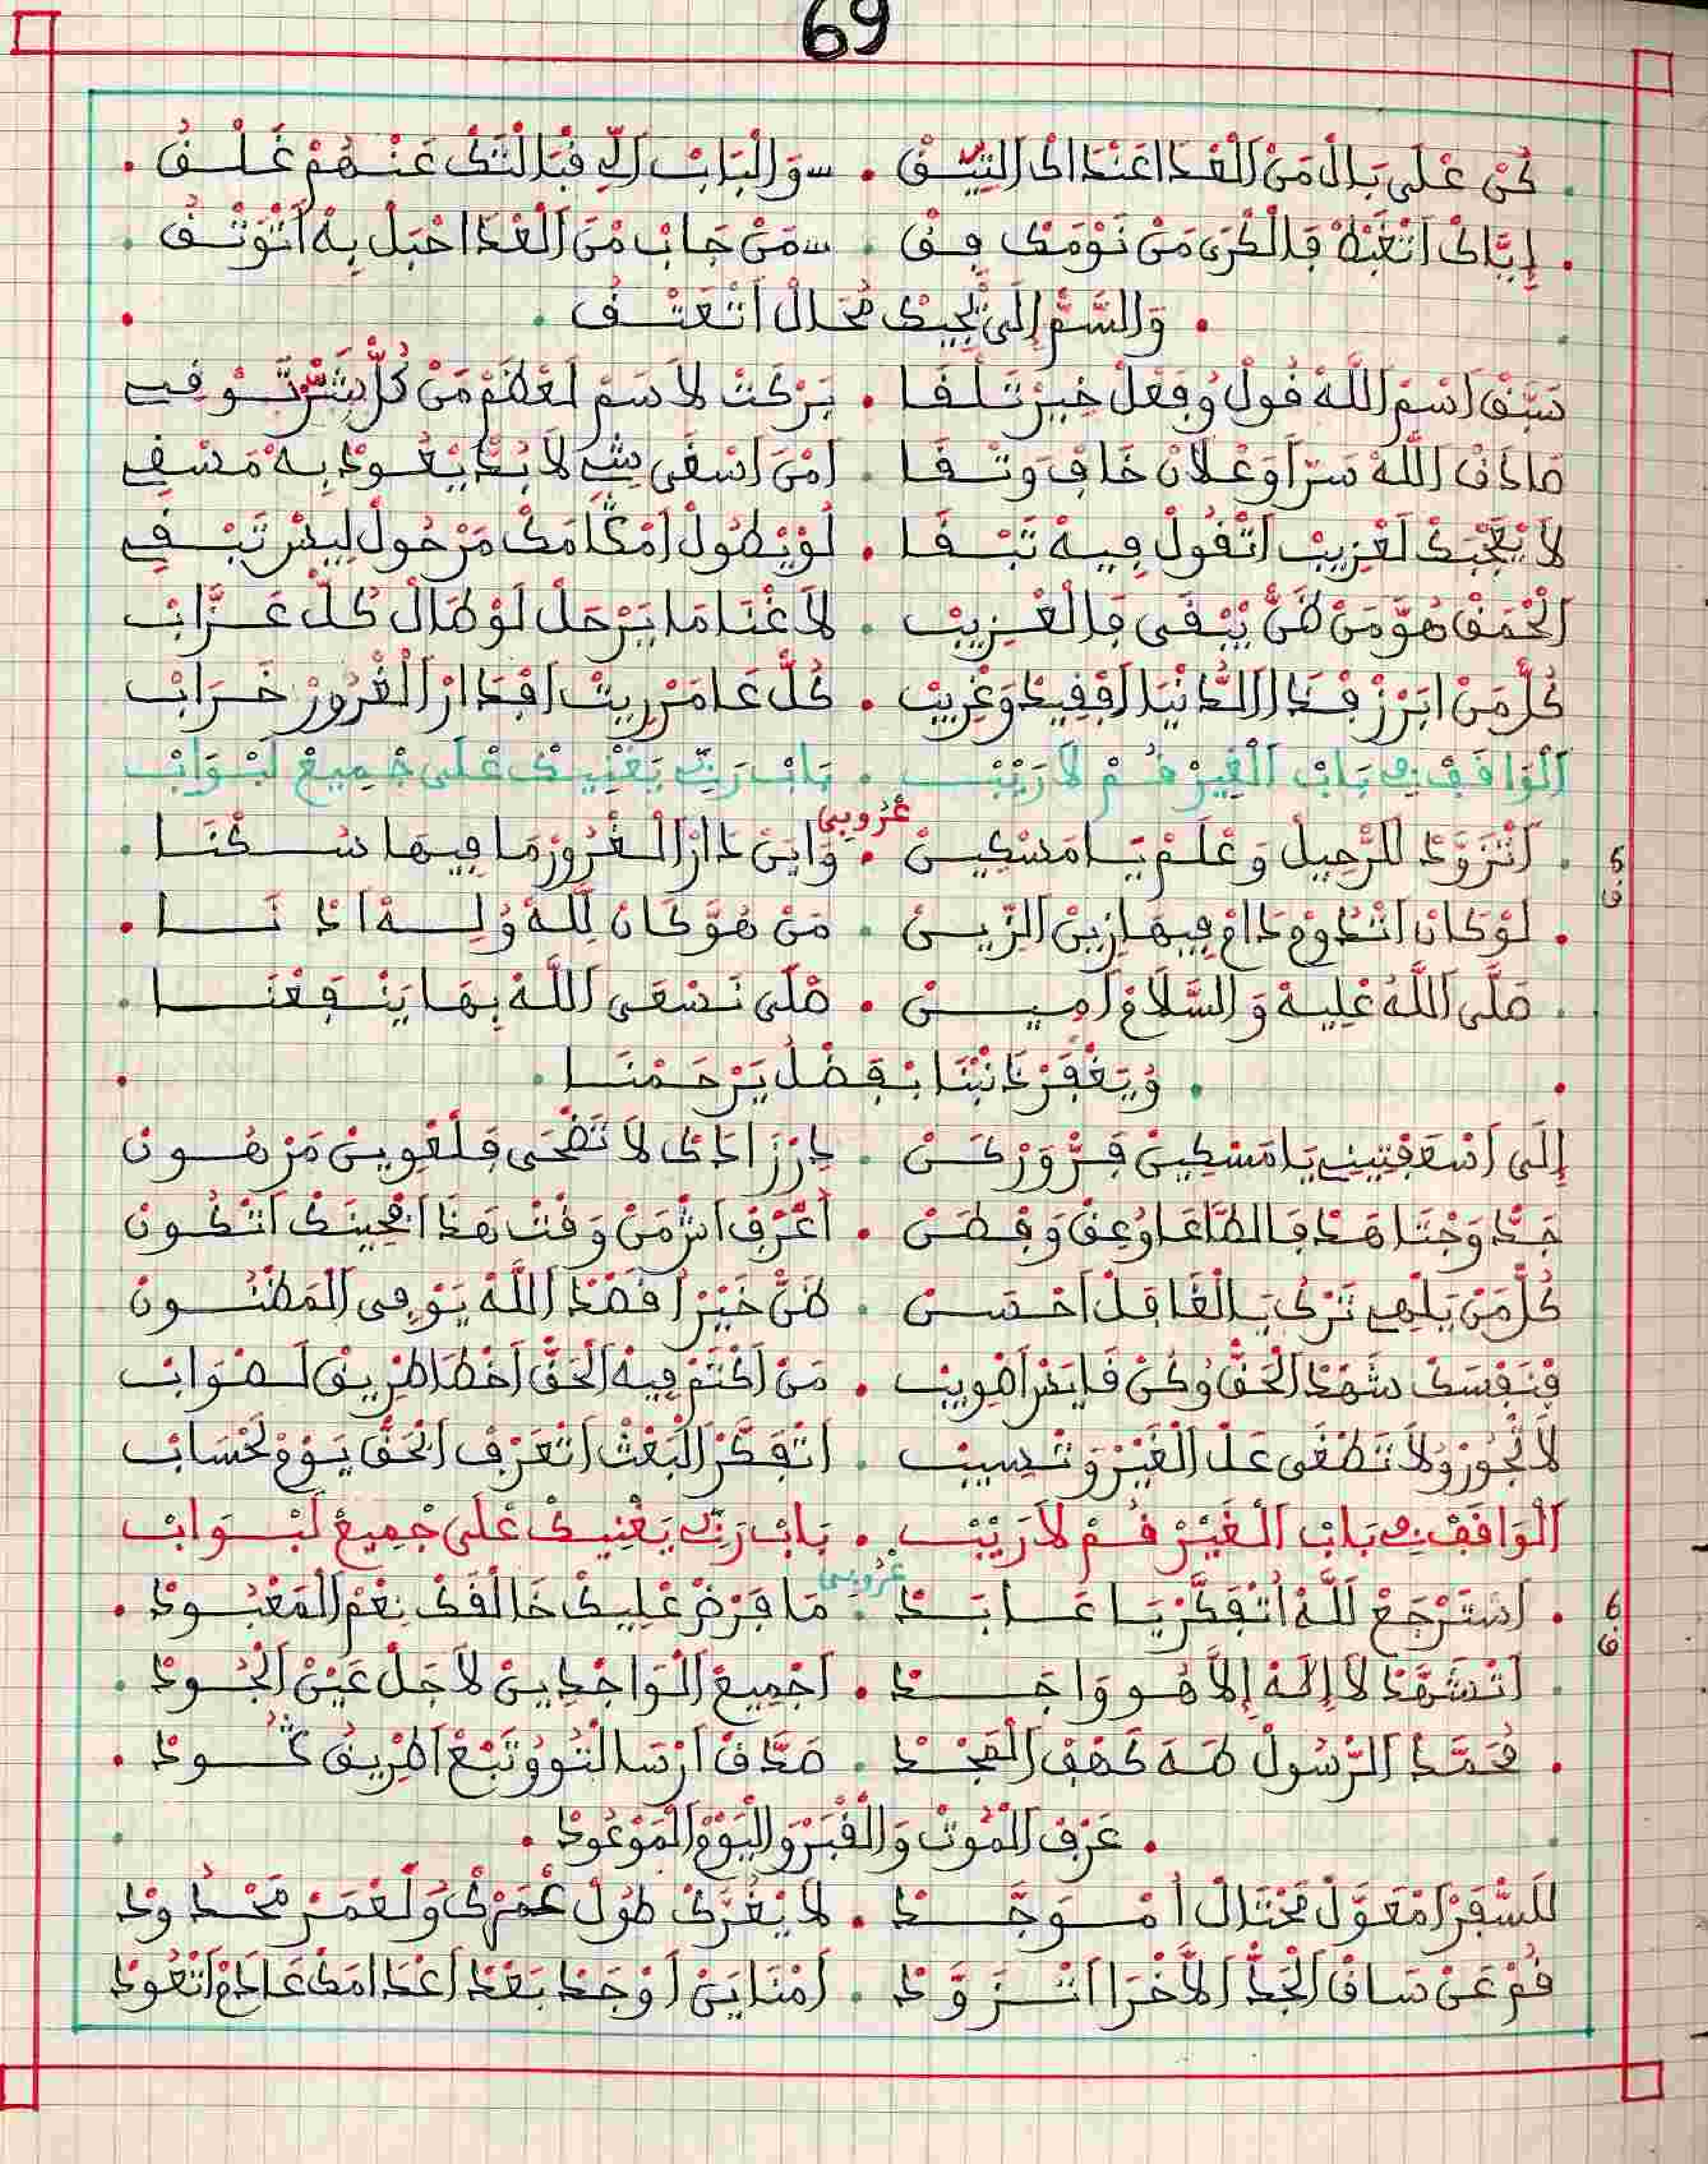 69
كُنْ عْلَى بَالْ مَنْ الْغْدَا عَنْدَاكْ التِّيـقْ . سوَالْبَابْ اللِّي قْبَالْتَكْ عَنْـهُمْ غَـلْـقُ
إِيَّاكْ اتْغَبْطْ فَالْكْرَى مَنْ نَوْمَكْ فِـقْ . سمَنْ جَابْ مْنَ الْغْدَا حْبَلْ بِهْ اتَّوْثَـقُ
وَالسَّمّْ إِلَى يْجِيكْ مُحَالْ اتْعَتْـقُ
سَبَّقْ اسْمَ اللَّهْ قُولْ وُفِعْلْ خِيرْ تَـلْـقَـا . بَرْكَتْ لَاسَمْ لَعْظَمْ مَنْ كُلّْ شَرّْ تَـوْقِي
صَادَقْ اللَّهْ سَرّاً وَعْلَانْ خَافْ وَتْـقَـا . امْنَ اسْقَى شِي لَابُدّْ يْعُـودْ بِـهْ مَسْقِي
لَا يْعَجْبَكْ لَغْرِيبْ اتْقُولْ فِيـهْ تَبْـقَـا . لَوْ يْطُولْ امْكَامَكْ مَرْحُولْ لِيسْ تَبْـقِي
الْحْمَقْ هُوَّ مَنْ ظَنّْ يَبْـقَى فَالْغْـرِيبْ . لَاغْنَا مَا يَرْحَلْ لَوْ طَالْ كُلّْ عَـزَّابْ
كُلّْ مَنْ ابْرَزْ فْـهَذَا الدُّنْيَا افْقِيدْ وَغْرِيبْ . كُلّْ عَامَرْ رِيتْ افْدَارْ الْغْرُورْ خَـرَابْ
الْوَاقَفْ فِي بَابْ الْغِيرْ قُـمْ لَا رَيْبْـ . بَابْ رَبِّي يَغْنِيـكْ عْلَى جْمِيعْ لَبْـوَابْ
عْرُوبِي
5
ق
اتْزَوَّدْ لَلرّْحِيلْ وَعْلَـمْ يَـا مَسْكِيـنْ . وَايَنْ دَارْ الْـغْرُورْ مَا فِيـهَا سُـكْنَـا
لَوْكَانْ اتْدُومْ دَامْ فِيـهَا زِينْ الزِّيـنْ . مَنْ هُوَّ كَانْ لِلَّهْ وُلِـهْ ادْ نَـا
صَلَّى اللَّهْ عْلِيهْ وَالسَّلَامْ امِيـنْ . صْلَى نَسْعَى اللَّهْ بِـهَا يَنْـفَعْنَـا
وُيَغْفَرْ ذَانْبْنَا بْـفَضْلْ يَرْحَـمْنَـا
إِلَى اسْعَفْتِينِي يَا مَسْكِينْ فَـرّْ وَرْكَـنْ . بَارْزْ اذَاكْ لَا تَضْحَى فَلْغْوِينْ مَرْهُـونْ
جَدّْ وَجْتَاهَدْ فَالطَّاعَا وُعِقْ وَفْـطَـنْ . اعْرَفْ اشْمَنْ وَقْتْ هَذَا افْحِينَكْ اتْكُـونْ
كُلّْ مَنْ يَلْهِي تَرْكُ يَـالْغَافَـلْ احْسَـنْ . ظَنّْ خَيْراً قَصْدْ اللَّهْ يَوْفِى الْمَظْنُـونْ
فْنَفْسَكْ شَهْدْ الْحَقّْ وُكُنْ فَايَقْ اصْوِيبْ . مَنْ اكْتَمْ فِيهْ الْحَقّْ اخْطَا طْرِيقْ لَـصْوَابْ
لَا تْجُورْ وُلَا تَطْغَى عَلْ الْغَيْرْ وَتْـسِيبْ . اتْفَـكَّرْ الْبَعْثْ اتْعَرْفْ الْحَقّْ يَـوْمْ لَحْسَابْ
الْوَاقَفْ فِي بَابْ الْغَيْرْ قُـمْ لَا رَيْبْـ . بَابْ رَبِّي يَغْنِيـكْ عْلَى جْمِيعْ لَبْـوَابْ
عْرُوبِي
6
ق
اسْتَرْجَعْ لَلَّهْ اتْفَكَّرْ يَـا عَـابَـدْ . مَا فَرْضْ عْلِيكْ خَالْقَكْ نِعْمَ الْمَعْبُـودْ
اتْشَهَّدْ لَا إِلَهْ إِلَّا هُـو وَاحَـدْ . اجْمِيعْ الْوَاجْدِيـنْ لَاجَلْ عَيْنْ الْجُـودْ
مُحَمَّدْ الرَّسُولْ طَـهَ كَهْفْ الْمَجْـدْ . صَدَّقْ ارْسَالْتُو وُتْبَعْ اطْرِيقُ كُـودْ
عَرْفْ الْمُوتْ وَالْقْبَرْ وَالْيَوْمْ الْمَوْعُودْ
لَلسّْفَرْ امْعَوَّلْ مَحْتَالْ امْـوَجَّـدْ . لَا يْغُرَّكْ طُولْ عُمْرْكْ وُلَعْمَـرْ مَحْـدُودْ
قُمْ عَنْ سَاقْ الْجَدّْ الْاخْرَا اتْـزَوَّدْ . امْنَايَنْ اوْجَدْ بَعْدْ اعْدَامَكْ عَادَمْ اتْعُودْ